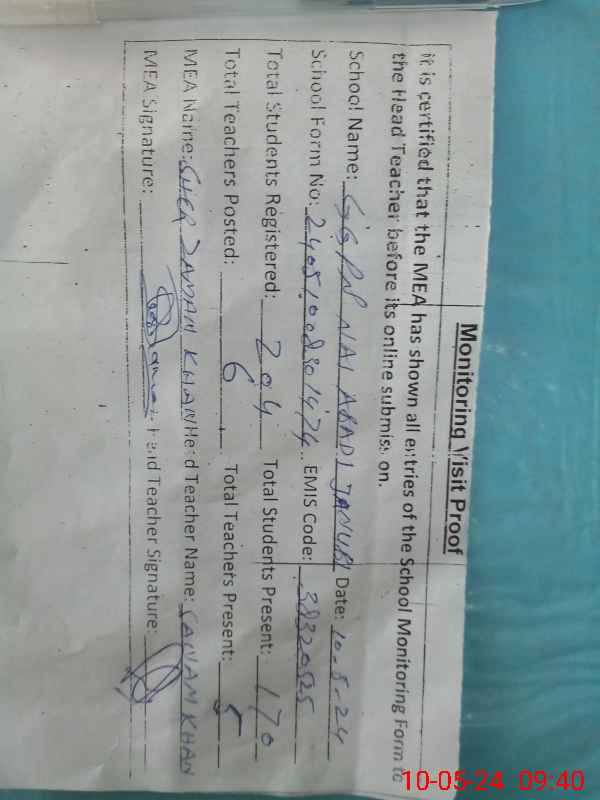 Monitoring Visit Proof
It is certified that the MEA has shown all entries of the School Monitoring Form to
the Head Teacher before its online submission.
School Name: GGPS NAI ABADI JANUBI Date: 10-5-24
School Form No: EMIS Code:
Total Students Registered: 204 Total Students Present: 170
Total Teachers Posted: 6 Total Teachers Present: 5
MEA Name: SHER ZAMAN KHAN Head Teacher Name: SANAM KHAN
MEA Signature: Head Teacher Signature:
10-05-24 09:40